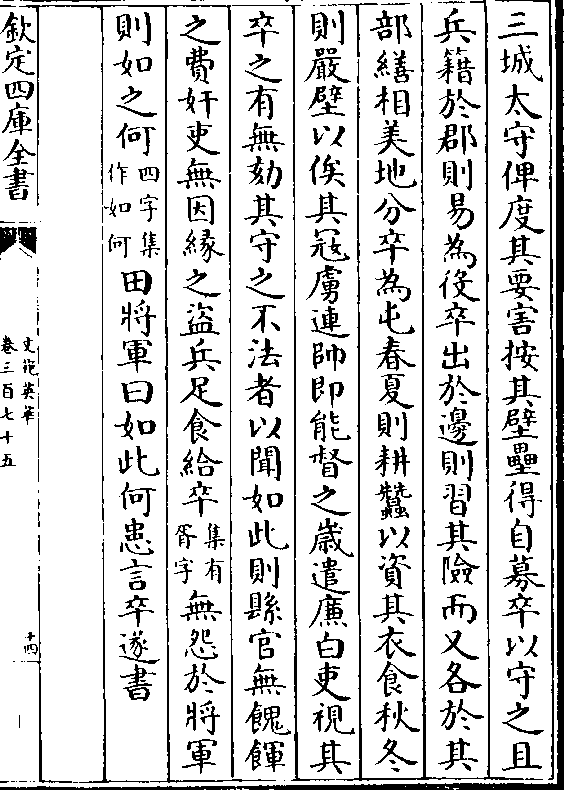 三城太守俾度其要害按其壁壘得自募卒以守之且
兵籍於郡則易為役卒出於邊則習其險而又各於其
部繕相美地分卒為屯春夏則耕蠶以資其衣食秋冬
則嚴壁以俟其冦虜連帥即能督之歳遣廉白吏視其
卒之有無劾其守之不法者以聞如此則縣官無餽餫
之費奸吏無因緣之盜兵足食給卒
集有
胥字
無怨於將軍
則如之何
四字集
作如何
田將軍曰如此何患言卒遂書
欽定四庫全書
文苑英華
卷三百七十五
十四